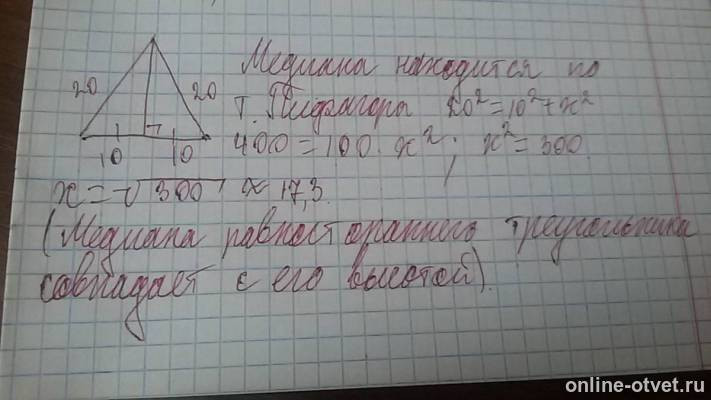 20
20
10
10
Медиана находится по
т. Пифагора 20²=10²+x²
400=100 · x²; x²=300.
x=√300 ≈ 17,3.
(Медиана равностороннего треугольника
совпадает с его высотой).
online-otvet.ru